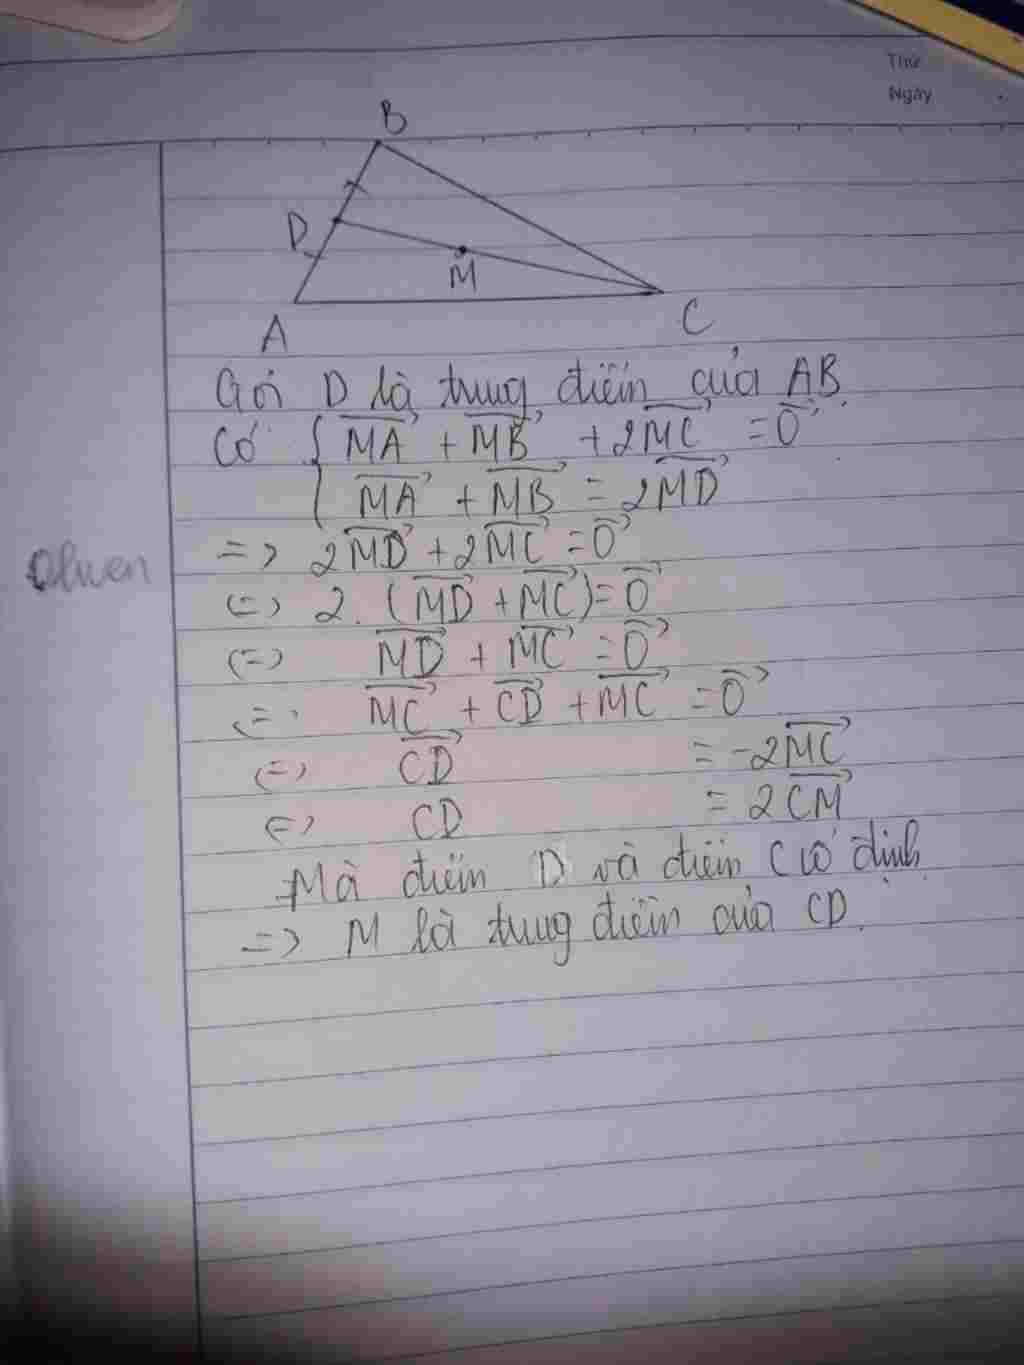 Thứ
Ngày
B
D
M
A
C
Gọi D là trung điểm của AB.
Có { \overrightarrow{MA} + \overrightarrow{MB} + 2\overrightarrow{MC} = \overrightarrow{0}
{ \overrightarrow{MA} + \overrightarrow{MB} = 2\overrightarrow{MD}
=> 2\overrightarrow{MD} + 2\overrightarrow{MC} = \overrightarrow{0}
(=) 2. (\overrightarrow{MD} + \overrightarrow{MC}) = \overrightarrow{0}
(=) \overrightarrow{MD} + \overrightarrow{MC} = \overrightarrow{0}
(=) \overrightarrow{MC} + \overrightarrow{CD} + \overrightarrow{MC} = \overrightarrow{0}
(=) \overrightarrow{CD} = -2\overrightarrow{MC}
(=) CD = 2\overrightarrow{CM}
Mà điểm D và điểm C cố định
=> M là trung điểm của CD.